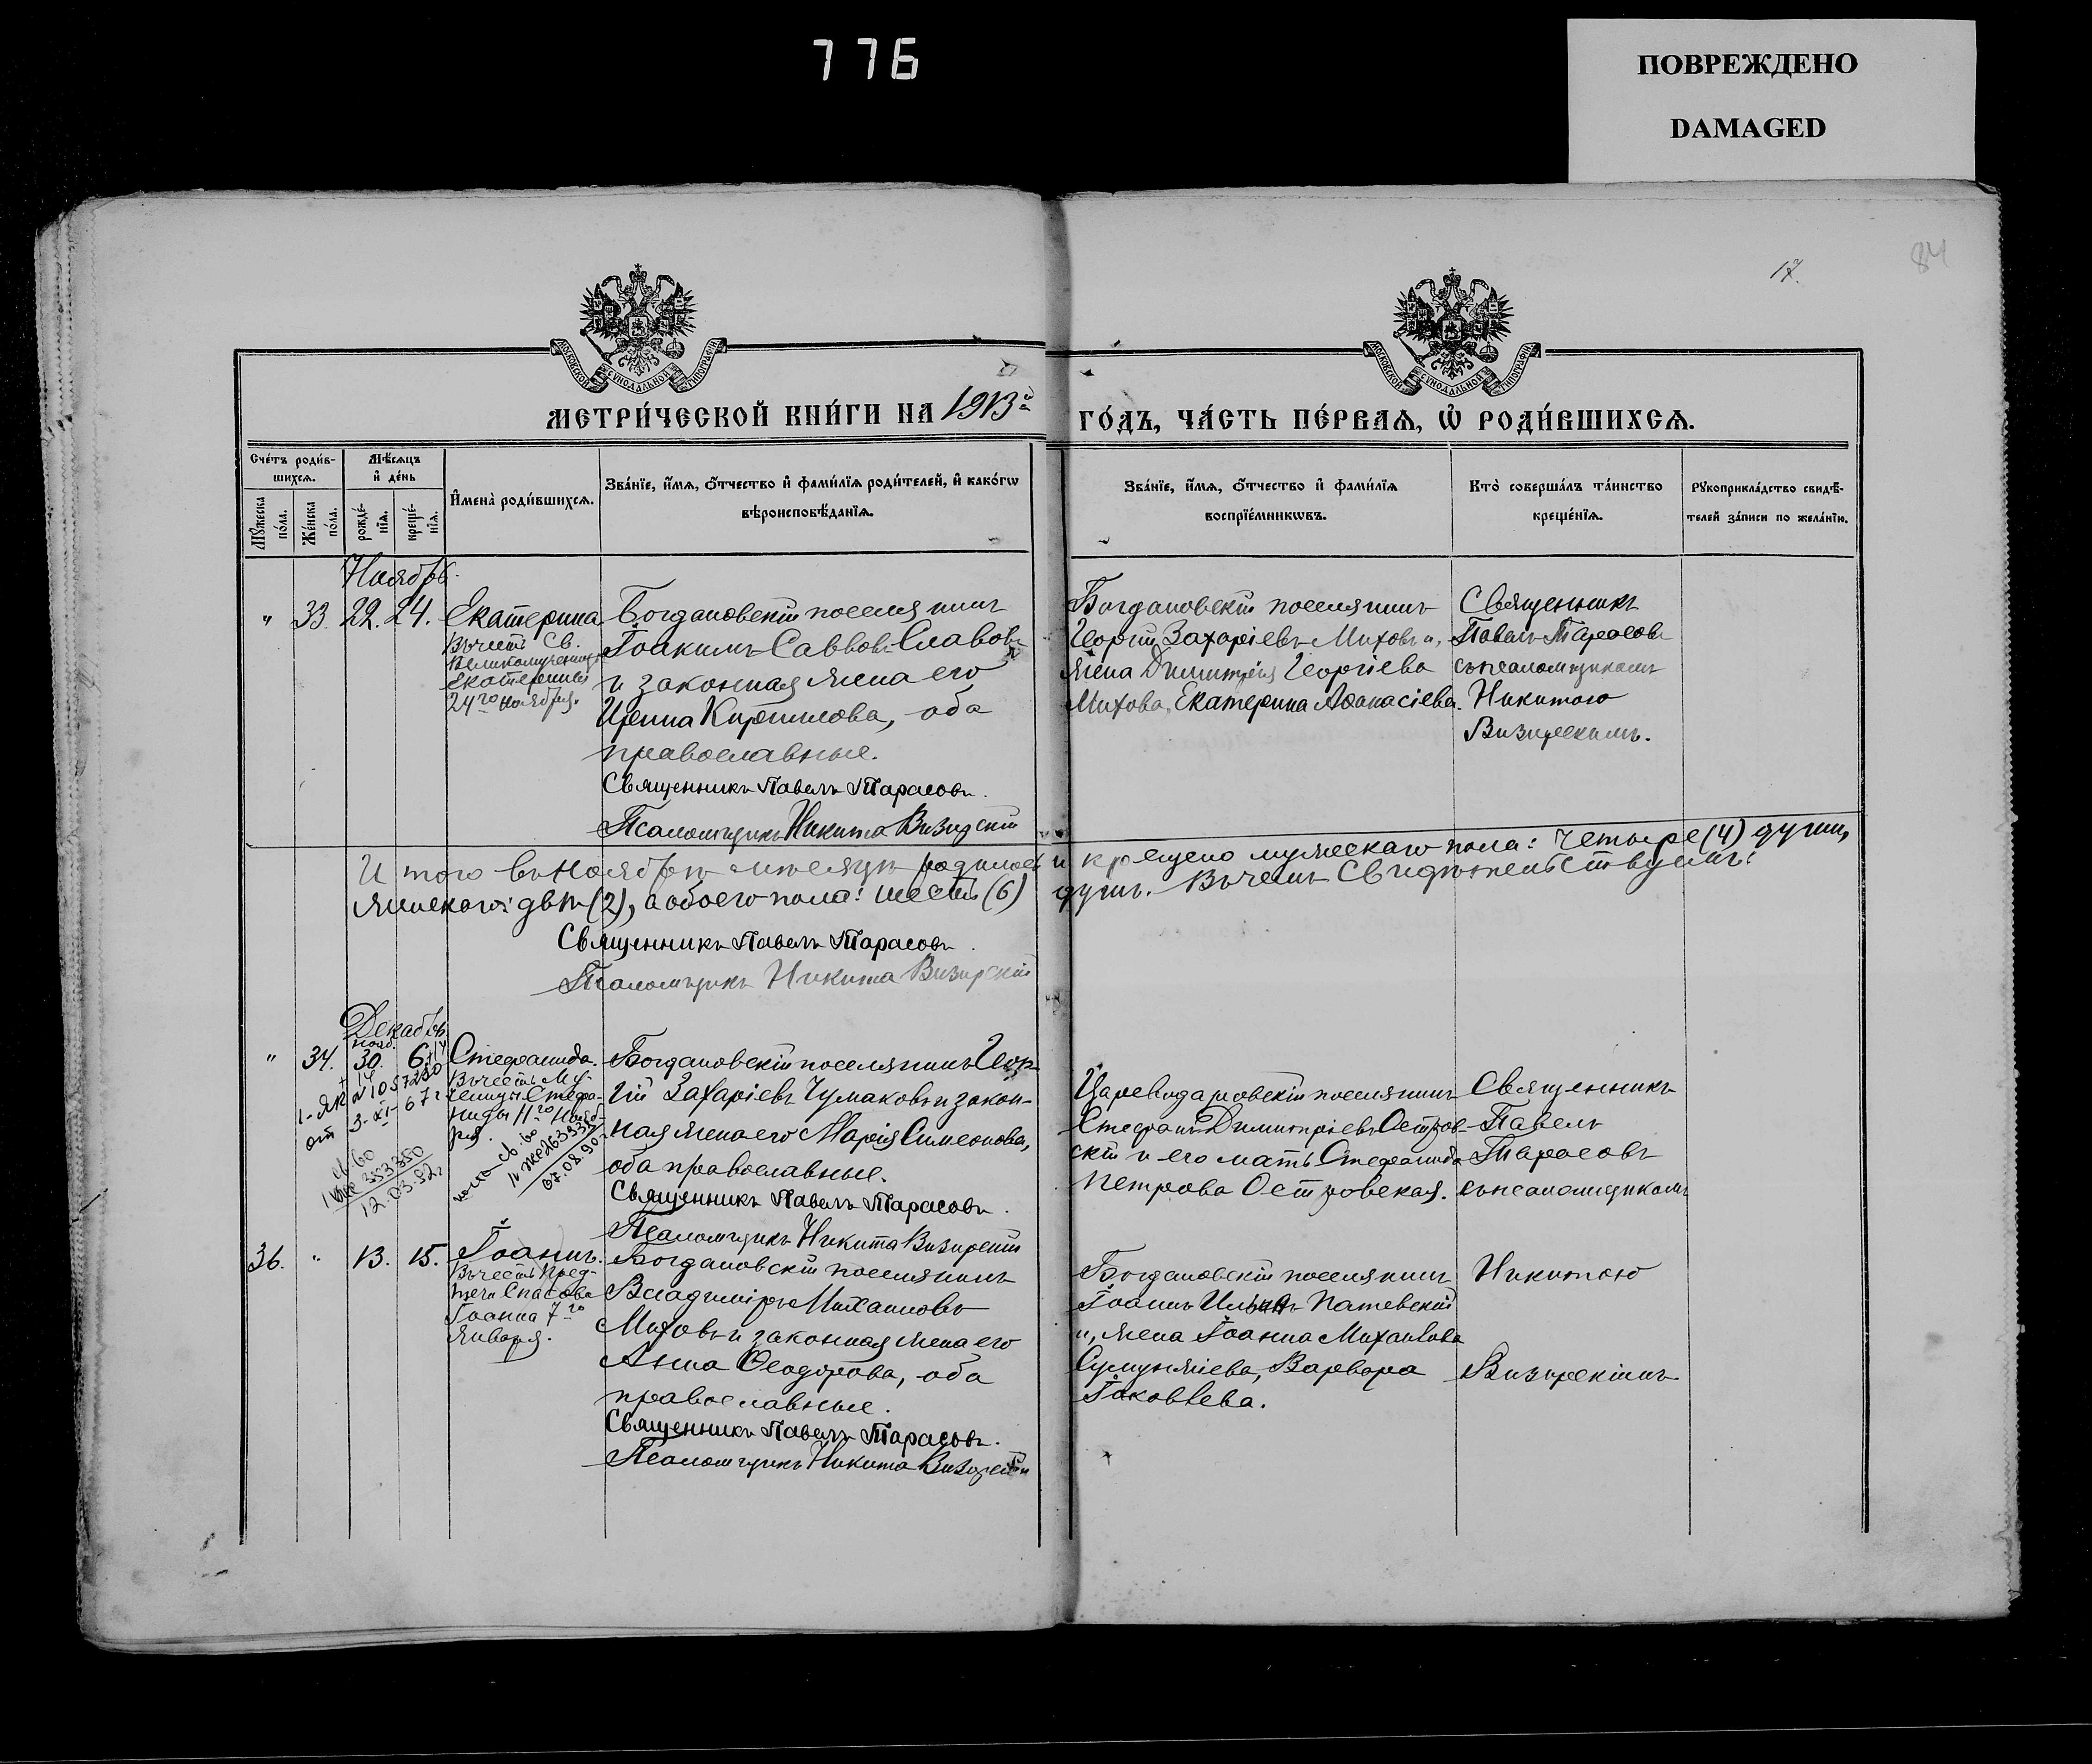 776
ПОВРЕЖДЕНО
DAMAGED
17.
84
МОСКОВСКОЙ СѴНОДАЛЬНОЙ ТИПОГРАФІИ
МОСКОВСКОЙ СѴНОДАЛЬНОЙ ТИПОГРАФІИ
МЕТРИ́ЧЕСКОЙ КНИ́ГИ НА 1913й ГО́ДЪ, ЧА́СТЬ ПЕ́РВАѦ, Ѡ҆ РОДИ́ВШИХСѦ.
Сче́тъ роди́в-
шихсѧ.
Мѣ́сѧцъ
и҆ де́нь
Мꙋ́жеска по́ла.
Же́нска по́ла.
рожде́-
нїѧ.
креще́-
нїѧ.
И҆мена̀ роди́вшихсѧ.
Зва́нїе, и҆́мѧ, ѻ҆́тчество и҆ фами́лїѧ роди́телей, и҆ како́гѡ
вѣроисповѣ́данїѧ.
Зва́нїе, и҆́мѧ, ѻ҆́тчество и҆ фами́лїѧ
воспрїе́мникѡвъ.
Кто̀ соверша́лъ та́инство
креще́нїѧ.
Рꙋкоприкла́дство свидѣ́-
телей за́писи по жела́нїю.
Ноябрь.
" 33. 22. 24. Екатерина
Въ честь Св.
Великомученицы
Екатерины
24го ноября.
Богдановскій поселянинъ
Іоакимъ Саввовъ Славовъ
и законная жена его
Ирина Кириллова, оба
православные.
Священникъ Павелъ Тарасовъ.
Псаломщикъ Никита Визирскій
Богдановскій поселянинъ
Георгій Захаріевъ Митовъ и,
жена Димитрія Георгіева
Митова, Екатерина Аѳанасіева.
Священникъ
Павелъ Тарасовъ
съ псаломщикомъ
Никитою
Визирскимъ.
И того въ Ноябрѣ мѣсяцѣ родилось и крещено мужескаго пола: четыре (4) души,
женскаго: двѣ (2), а обоего пола: шесть (6) душъ. Въ чемъ свидѣтельствуемъ:
Священникъ Павелъ Тарасовъ.
Псаломщикъ Никита Визирскій
Декабрь
" 34. нояб. 30. 6. Стефанида.
Въ честь Му-
ченицы Стефа-
ниды 11го Нояб-
ря.
3-XI-67г
12.03.82г
07.08.90
Богдановскій поселянинъ Геор-
гій Захаріевъ Чумаковъ и закон-
ная жена его Марія Симеонова,
оба православные.
Священникъ Павелъ Тарасовъ.
Псаломщикъ Никита Визирскій
Царевидаровскій поселянинъ
Стефанъ Димитріевъ Остров-
скій и его мать Стефанида
Петрова Островская.
Священникъ
Павелъ
Тарасовъ
съ псаломщикомъ
36. " 13. 15. Іоаннъ.
Въ честь Пред-
течи Спасова
Іоанна 7го
Января.
Богдановскій поселянинъ
Владиміръ Михаиловъ
Митовъ и законная жена его
Анна Ѳеодорова, оба
православные.
Священникъ Павелъ Тарасовъ.
Псаломщикъ Никита Визирскій
Богдановскій поселянинъ
Іоаннъ Ильинъ
и, жена Іоанна Михаилова
Варвара
Іаковлева.
Никитою
Визирскимъ